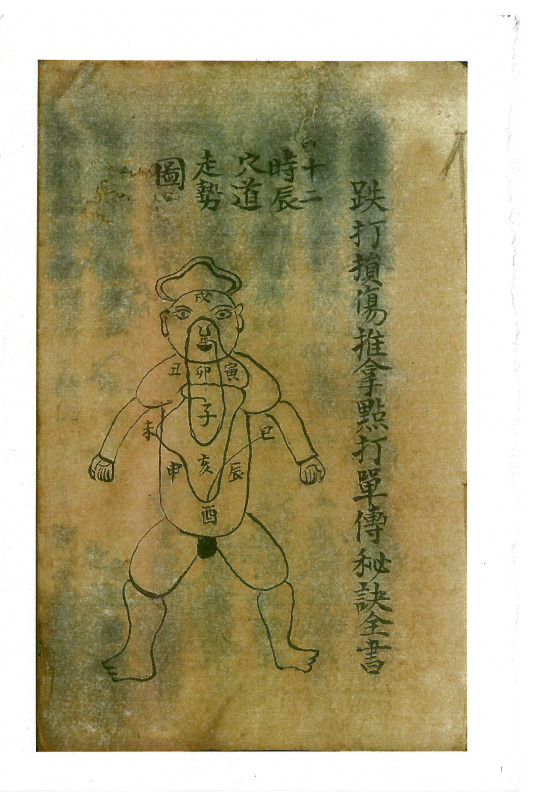 跌打損傷推拿點打單傳秘訣全書
十二
時辰
穴道
走勢
圖
戌
丑
卯
寅
子
未
巳
申
亥
辰
酉